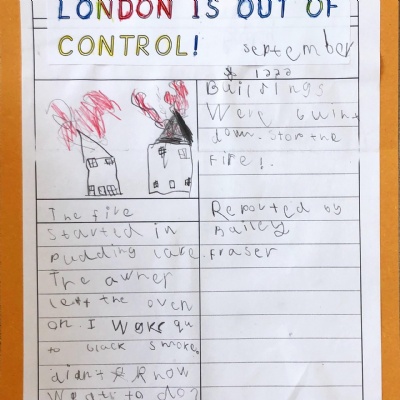 LONDON IS OUT OF
CONTROL!
september
1222
Buildings
Were buint
down. Stop the
Fire!.
The fire
Started in
pudding lane.
The owner
left the oven
on. I Woke
to black smoke.
didn't know
to do?
Reported by
Bailey
Fraser